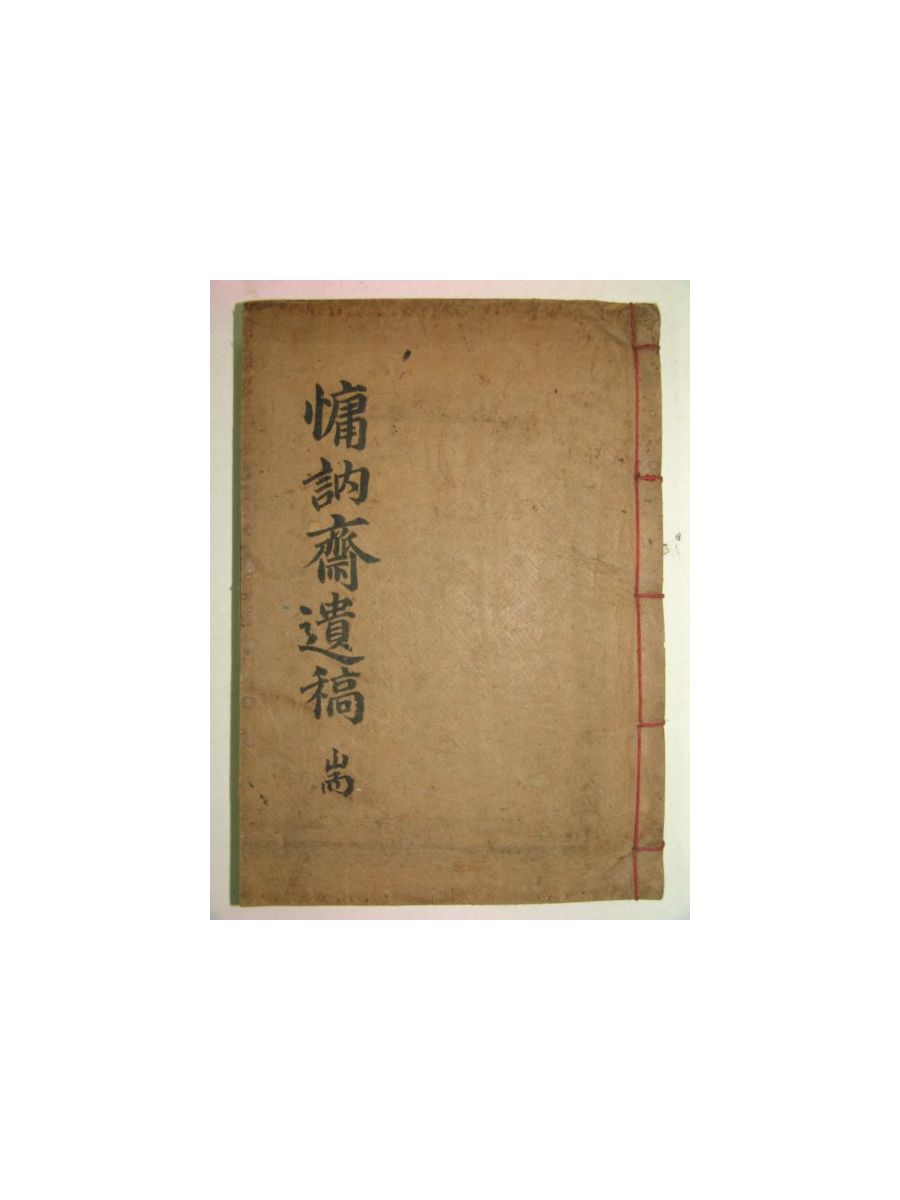 慵訥齋遺稿 耑